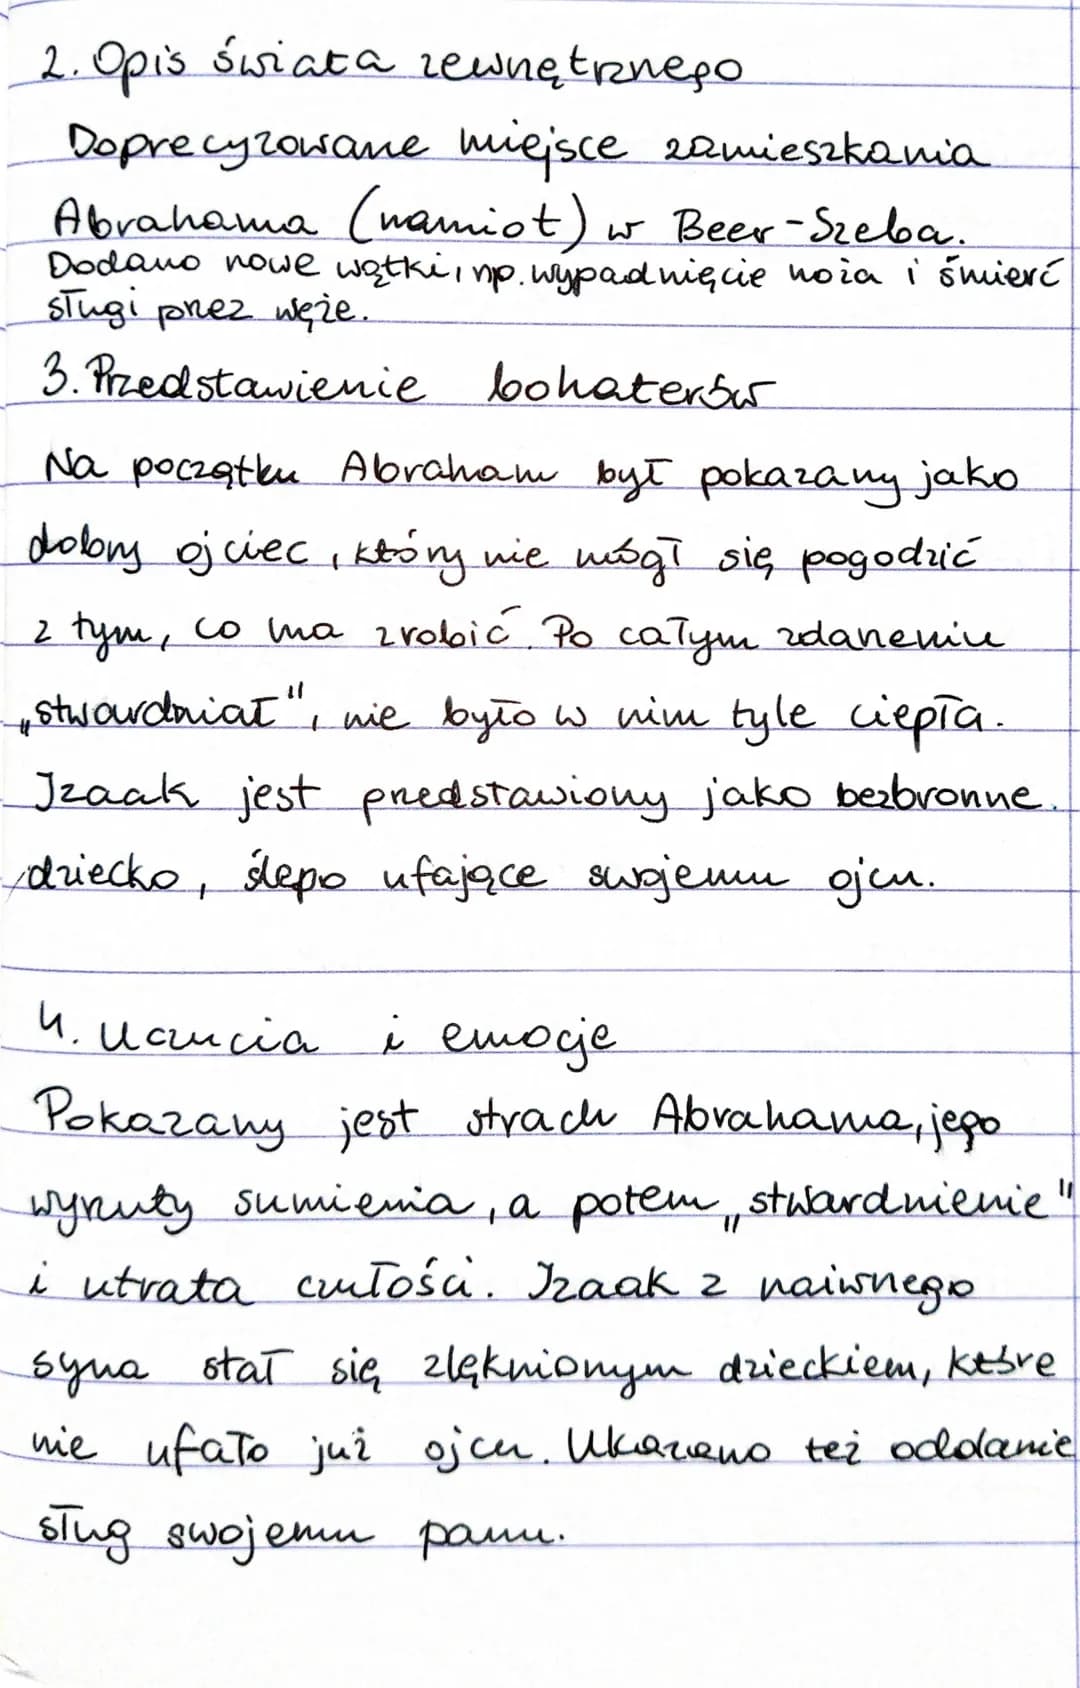 2. Opis świata zewnętrznego
Doprecyzowane miejsce zamieszkania
Abrahama (namiot) w Beer-Szeba.
Dodano nowe wątki, np. wypadnięcie noża i śmierć
sługi przez węże.
3. Przedstawienie bohaterów
Na początku Abraham był pokazany jako
dobry ojciec, który nie mógł się pogodzić
z tym, co ma zrobić. Po całym zdarzeniu
„stwardniał", nie było w nim tyle ciepła.
Izaak jest przedstawiony jako bezbronne
dziecko, ślepo ufające swojemu ojcu.
4. Uczucia i emocje
Pokazany jest strach Abrahama, jego
wyrzuty sumienia, a potem „stwardnienie"
i utrata czułości. Izaak z naiwnego
syna stał się zlęknionym dzieckiem, które
nie ufało już ojcu. Ukazano też oddanie
sług swojemu panu.